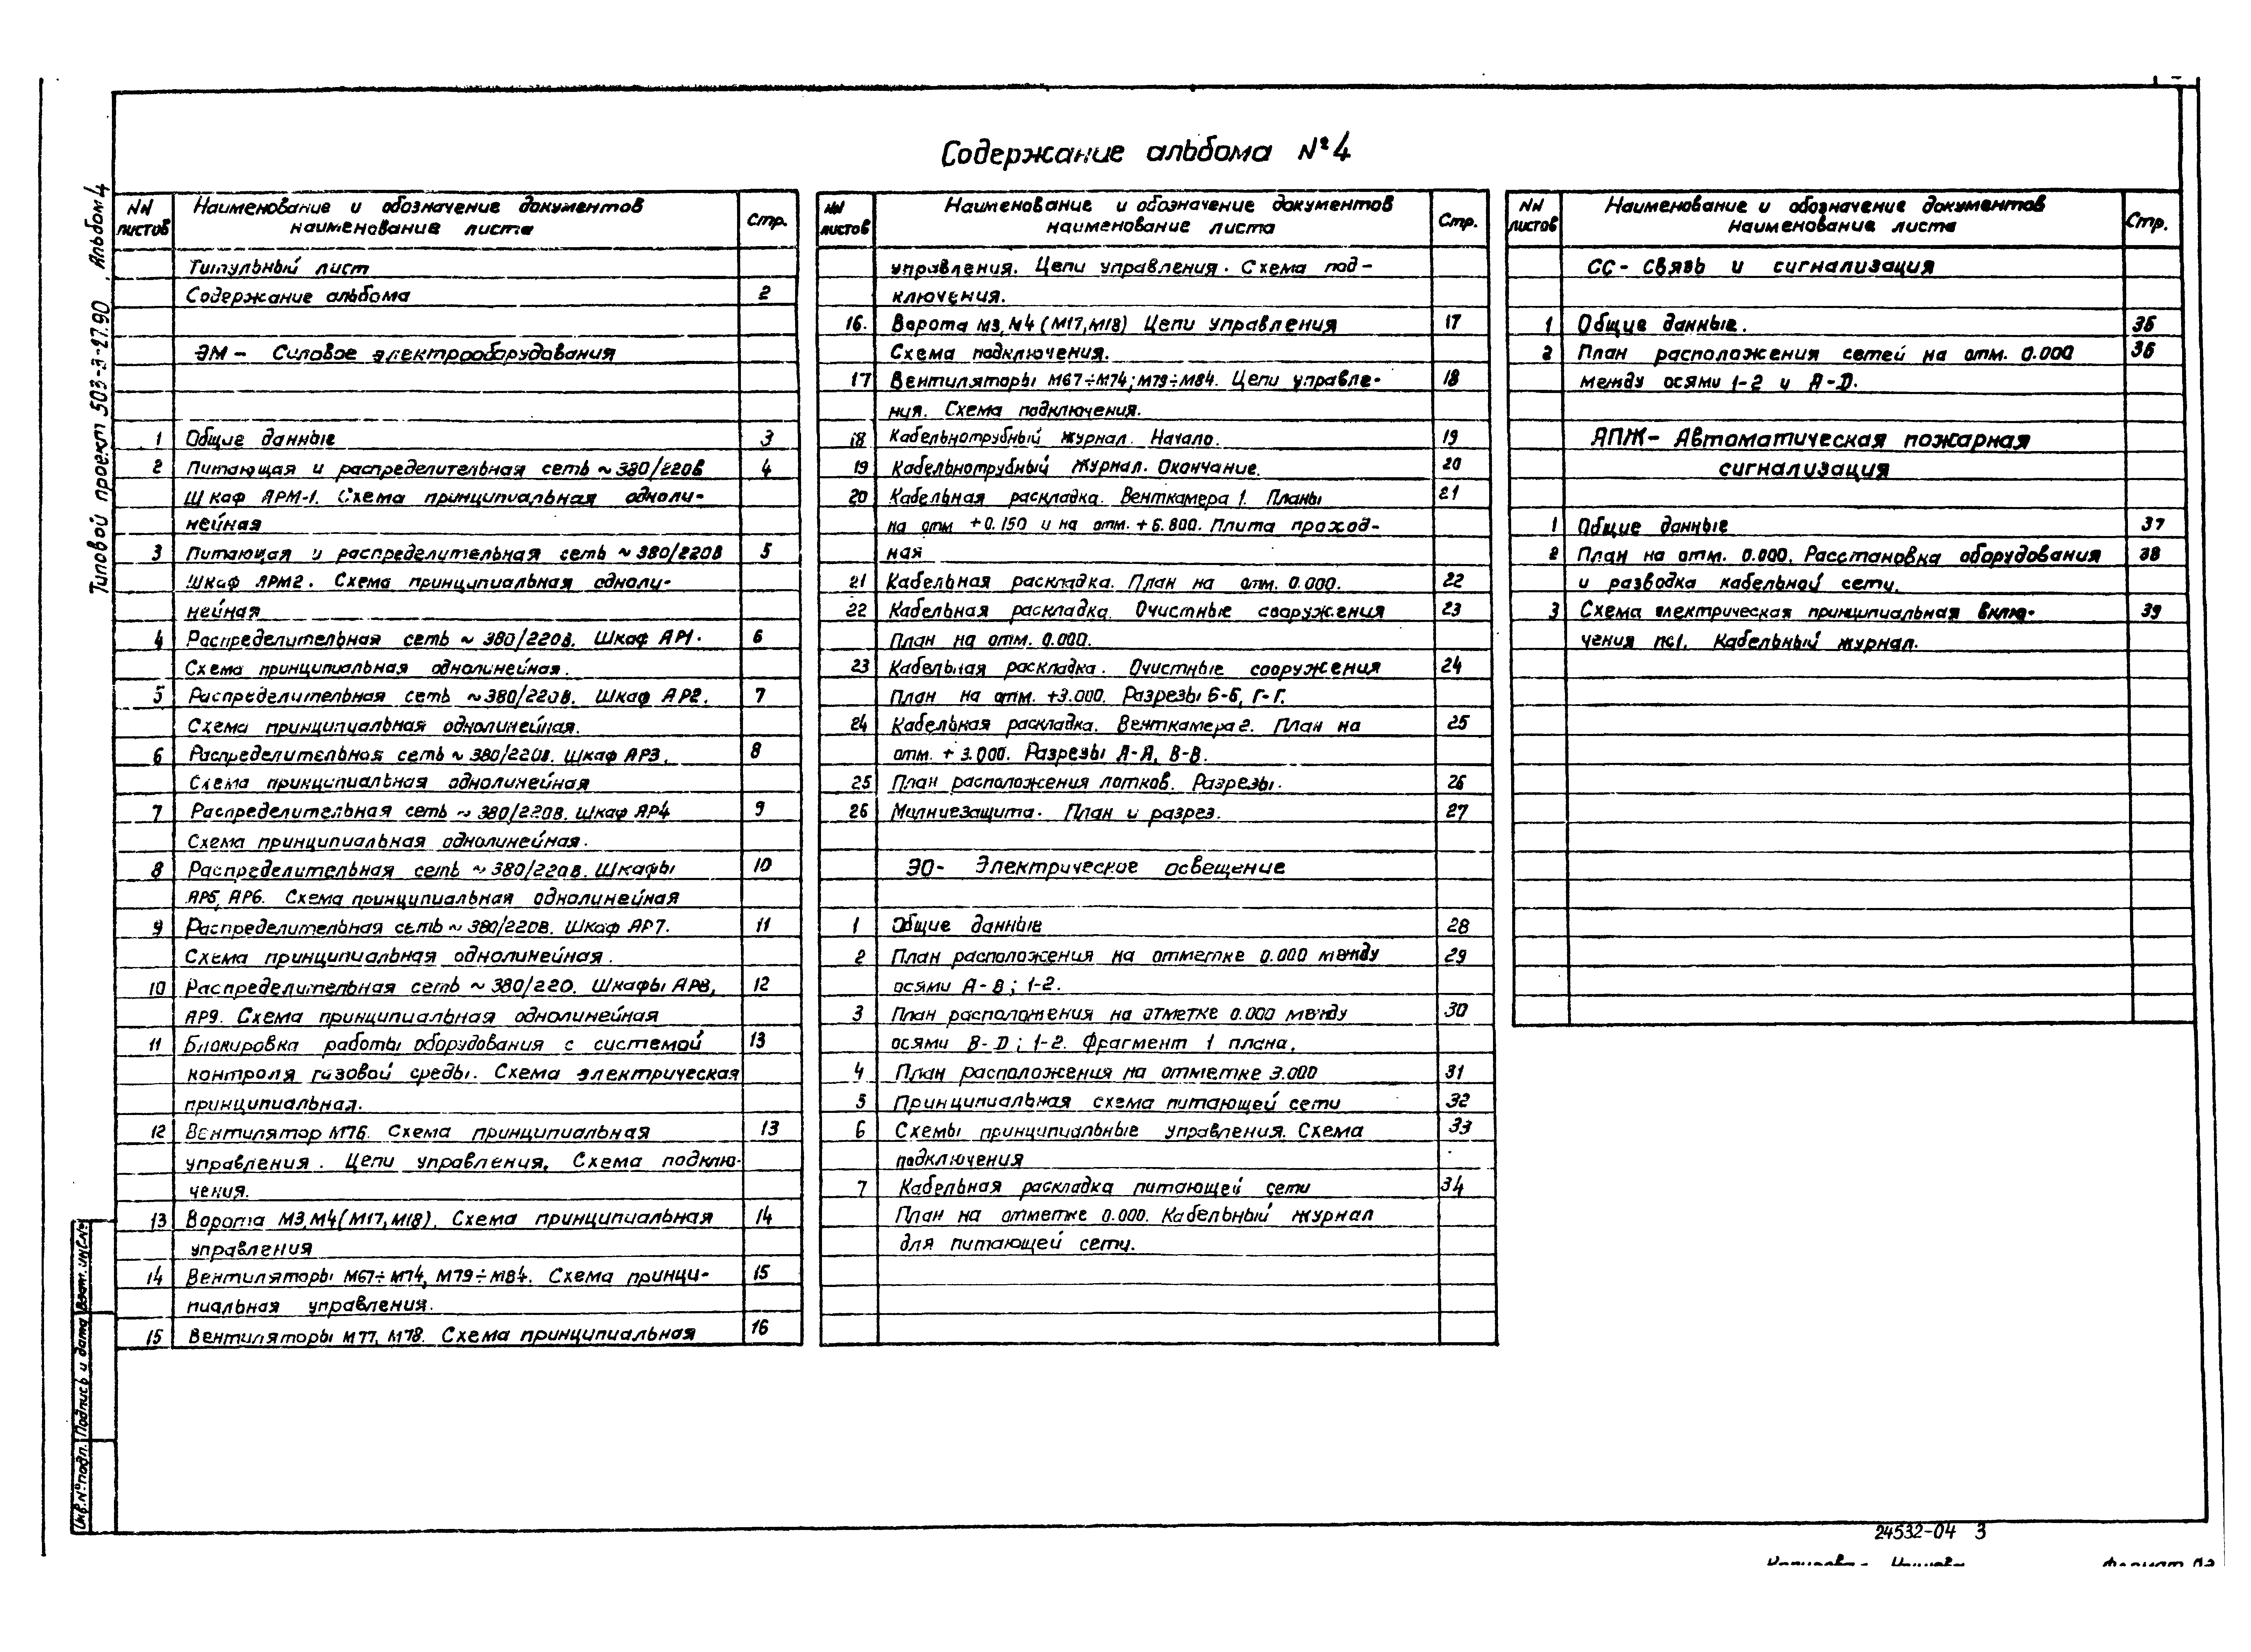 Содержание альбома №4
Типовой проект 503-3-27.90, Альбом 4
NN листов
Наименование и обозначение документов
наименование листа
Стр.
Титульный лист
Содержание альбома 2
ЭМ - Силовое электрооборудования
1 Общие данные 3
2 Питающая и распределительная сеть ~380/220в 4
Шкаф ЯРМ-1. Схема принципиальная одноли-
нейная
3 Питающая и распределительная сеть ~380/220в 5
Шкаф ЯРМ2. Схема принципиальная одноли-
нейная
4 Распределительная сеть ~380/220в. Шкаф АР1. 6
Схема принципиальная однолинейная.
5 Распределительная сеть ~380/220в. Шкаф АР2. 7
Схема принципиальная однолинейная.
6 Распределительная сеть ~380/220в. Шкаф АР3. 8
Схема принципиальная однолинейная
7 Распределительная сеть ~380/220в. Шкаф АР4 9
Схема принципиальная однолинейная.
8 Распределительная сеть ~380/220в. Шкафы 10
АР5, АР6. Схема принципиальная однолинейная
9 Распределительная сеть ~380/220в. Шкаф АР7. 11
Схема принципиальная однолинейная.
10 Распределительная сеть ~380/220. Шкафы АР8, 12
АР9. Схема принципиальная однолинейная
11 Блокировка работы оборудования с системой 13
контроля газовой среды. Схема электрическая
принципиальная.
12 Вентилятор М76. Схема принципиальная 13
управления. Цепи управления, Схема подклю-
чения.
13 Ворота М3, М4 (М17, М18). Схема принципиальная 14
управления
14 Вентиляторы М67÷М74, М79÷М84. Схема принци- 15
пиальная управления.
15 Вентиляторы М77, М78. Схема принципиальная 16
NN листов
Наименование и обозначение документов
наименование листа
Стр.
управления. Цепи управления. Схема под-
ключения.
16. Ворота М3, М4 (М17, М18) Цепи управления 17
Схема подключения.
17 Вентиляторы М67÷М74; М79÷М84. Цепи управле- 18
ния. Схема подключения.
18 Кабельнотрубный журнал. Начало. 19
19 Кабельнотрубный журнал. Окончание. 20
20 Кабельная раскладка. Венткамера 1. Планы 21
на отм +0.150 и на отм. +6.800. Плита проход-
ная
21 Кабельная раскладка. План на отм. 0.000. 22
22 Кабельная раскладка. Очистные сооружения 23
План на отм. 0.000.
23 Кабельная раскладка. Очистные сооружения 24
План на отм. +3.000. Разрезы Б-Б, Г-Г.
24 Кабельная раскладка. Венткамера 2. План на 25
отм. + 3.000. Разрезы А-А, В-В.
25 План расположения лотков. Разрезы. 26
26 Молниезащита. План и разрез. 27
ЭО- Электрическое освещение
1 Общие данные 28
2 План расположения на отметке 0.000 между 29
осями А-В; 1-2.
3 План расположения на отметке 0.000 между 30
осями В-D; 1-2. Фрагмент 1 плана.
4 План расположения на отметке 3.000 31
5 Принципиальная схема питающей сети 32
6 Схемы принципиальные управления. Схема 33
подключения
7 Кабельная раскладка питающей сети 34
План на отметке 0.000. Кабельный журнал
для питающей сети.
NN листов
Наименование и обозначение документов
Наименование листа
Стр.
СС - Связь и сигнализация
1 Общие данные. 35
2 План расположения сетей на отм. 0.000 36
между осями 1-2 и А-D.
АПЖ- Автоматическая пожарная
сигнализация
1 Общие данные 37
2 План на отм. 0.000. Расстановка оборудования 38
и разводка кабельной сети.
3 Схема электрическая принципиальная вклю- 39
чения пс1. Кабельный журнал.
Инв.№подл. Подпись и дата Взам.инв.№
24532-04 3